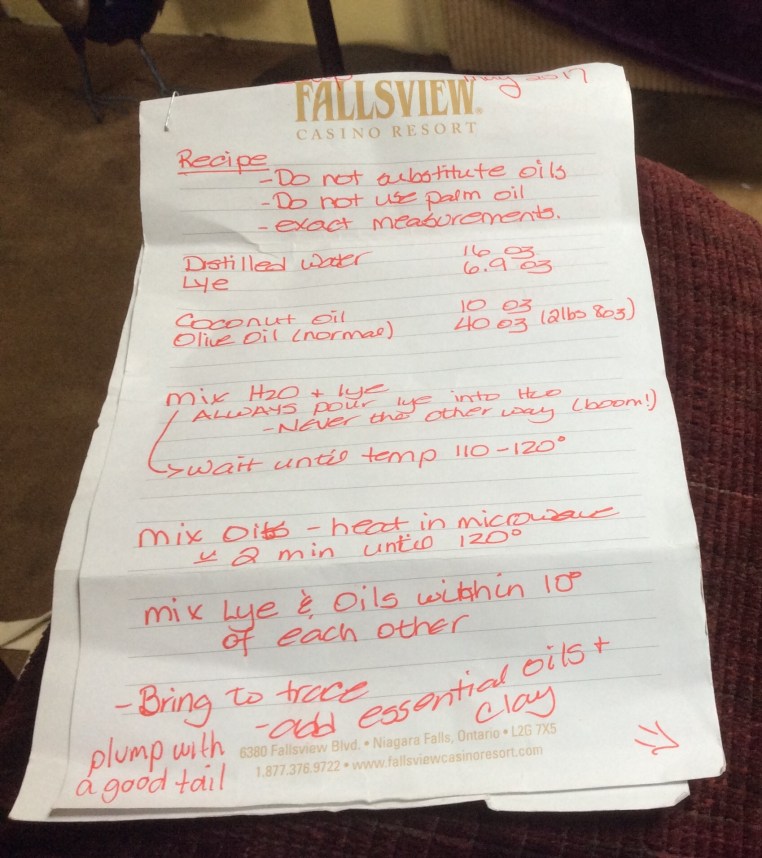 May 2017
FALLSVIEW®
CASINO RESORT
Recipe
-Do not substitute oils
-Do not use palm oil
-exact measurements.
Distilled Water 16 oz
Lye 6.9 oz
Coconut oil 10 oz
Olive Oil (normal) 40 oz (2lbs 8oz)
mix H2O + lye
ALWAYS pour lye into H2O
-Never the other way (boom!)
→ wait until temp 110-120°
mix Oils - heat in microwave
2 min until 120°
mix Lye & Oils within 10°
of each other
-Bring to trace
-add essential oils +
clay
plump with
a good tail
6380 Fallsview Blvd. • Niagara Falls, Ontario • L2G 7X5
1.877.376.9722 • www.fallsviewcasinoresort.com